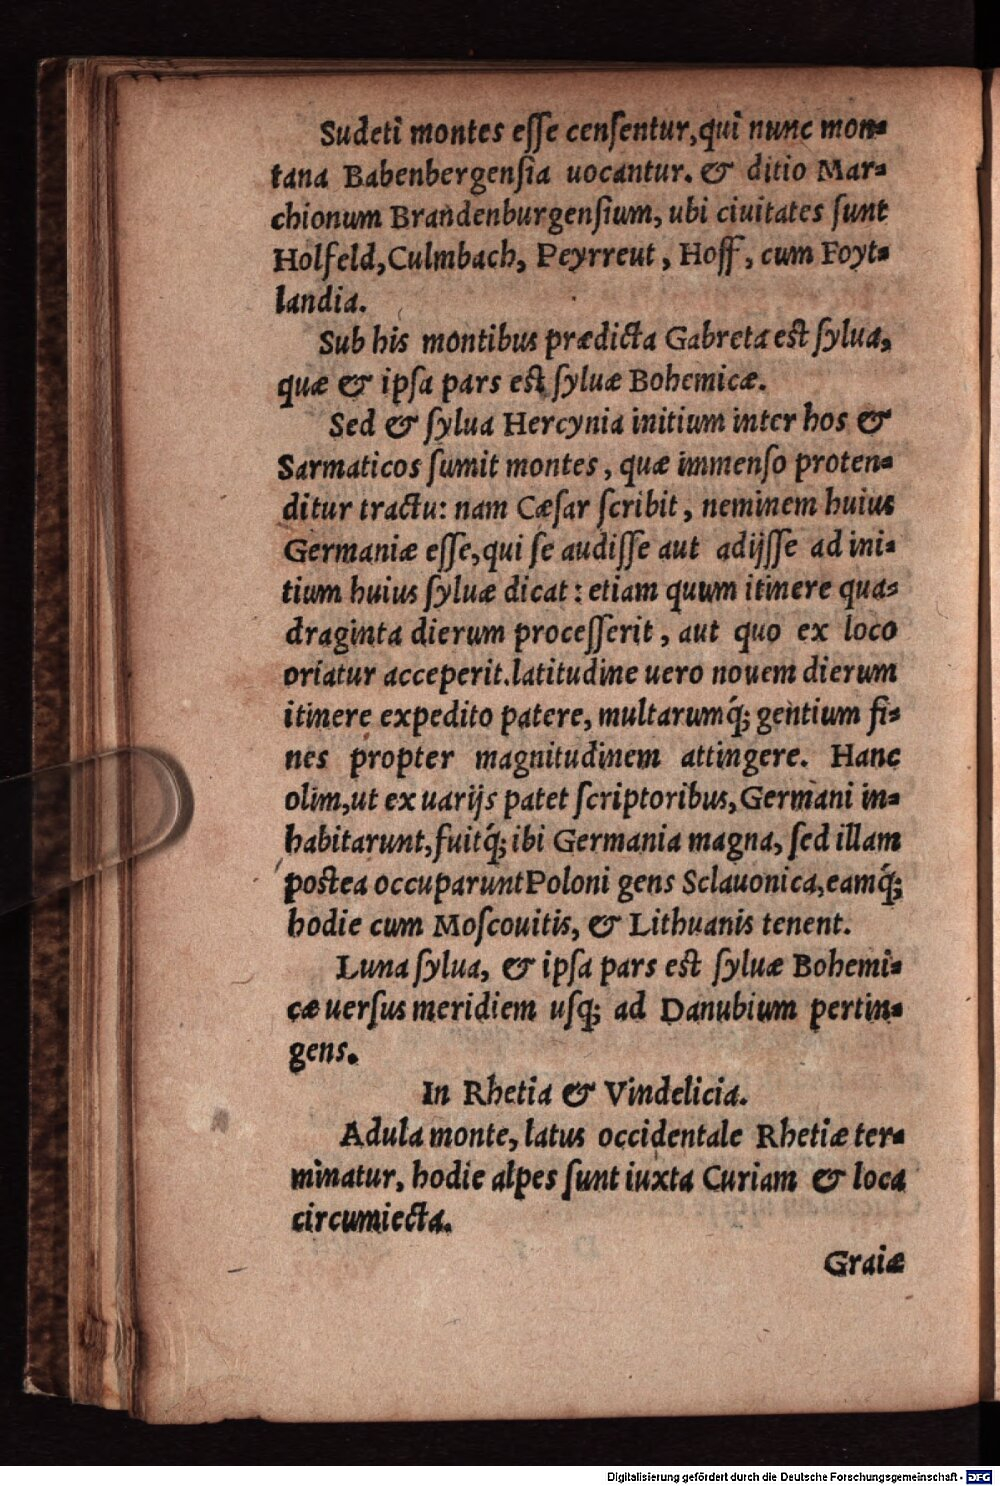 Sudeti montes eſſe cenſentur, qui nunc mon⸗
tana Babenbergenſia uocantur. & ditio Mar⸗
chionum Brandenburgenſium, ubi ciuitates ſunt
Holfeld, Culmbach, Peyrreut, Hoff, cum Foyt⸗
landia.
Sub his montibus prædicta Gabreta est ſylua,
quæ & ipſa pars est ſyluæ Bohemicæ.
Sed & ſylua Hercynia initium inter hos &
Sarmaticos ſumit montes, quæ immenſo proten⸗
ditur tractu: nam Cæſar ſcribit, neminem huius
Germaniæ eſſe, qui ſe audiſſe aut adijſſe ad ini⸗
tium huius ſyluæ dicat: etiam quum itinere qua⸗
draginta dierum proceſſerit, aut quo ex loco
oriatur acceperit. latitudine uero nouem dierum
itinere expedito patere, multarumq́; gentium fi⸗
nes propter magnitudinem attingere. Hanc
olim, ut ex uarijs patet ſcriptoribus, Germani in⸗
habitarunt, fuitq́; ibi Germania magna, ſed illam
postea occuparunt Poloni gens Sclauonica, eamq́;
hodie cum Moſcouitis, & Lithuanis tenent.
Luna ſylua, & ipſa pars est ſyluæ Bohemi⸗
cæ uerſus meridiem uſq; ad Danubium pertin⸗
gens.
In Rhetia & Vindelicia.
Adula monte, latus occidentale Rhetiæ ter⸗
minatur, hodie alpes ſunt iuxta Curiam & loca
circumiecta.
Graiæ
Digitalisierung gefördert durch die Deutsche Forschungsgemeinschaft - DFG